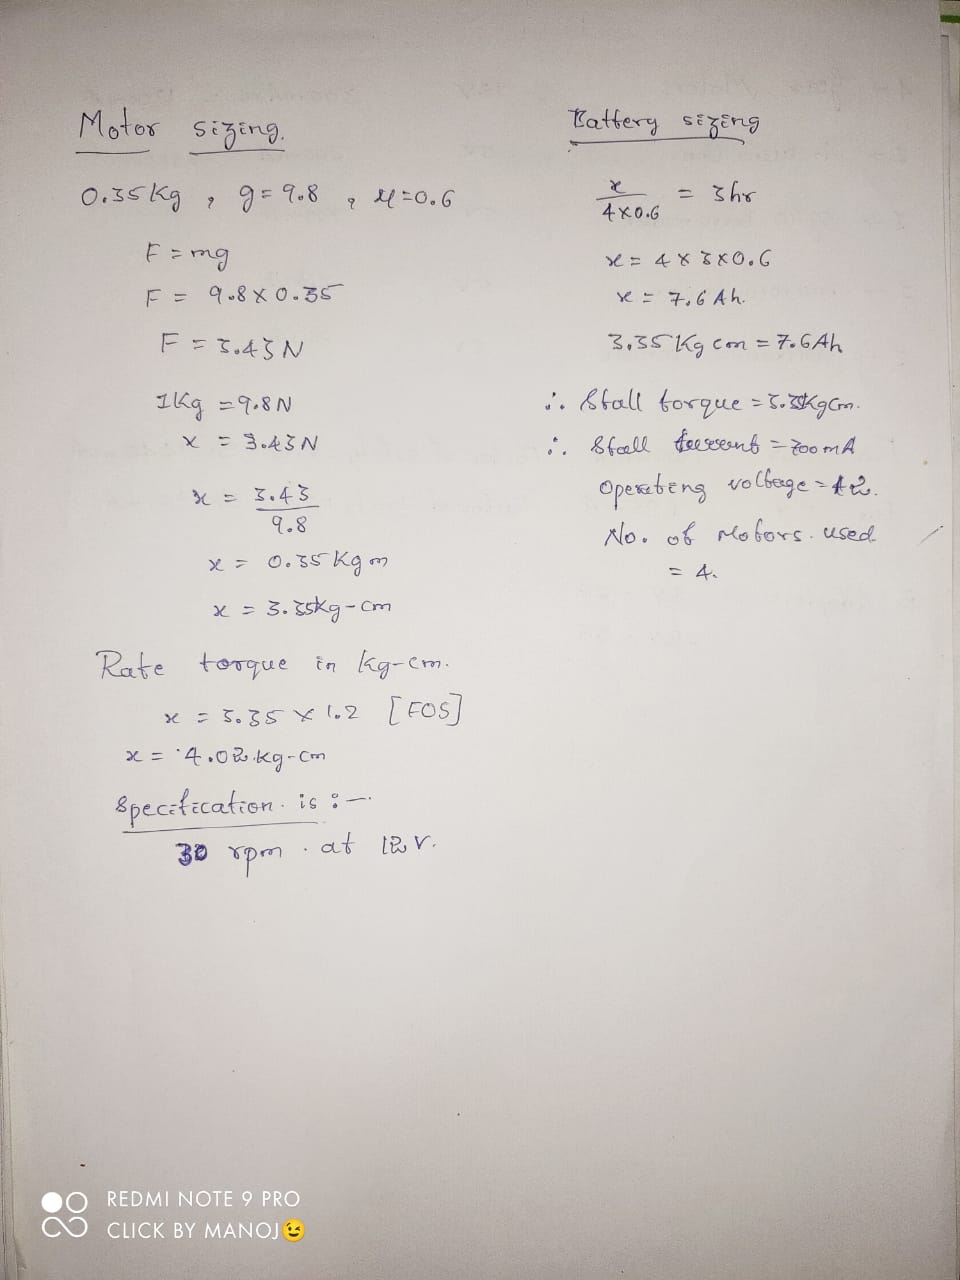 Motor sizing.
0.35kg , g=9.8 , μ=0.6
F=mg
F = 9.8 X 0.35
F = 3.43 N
1kg = 9.8N
x = 3.43N
x = 3.43
9.8
x = 0.35 kg m
x = 3.35kg-cm
Rate torque in kg-cm.
x = 3.35 x 1.2 [FOS]
x = 4.02.kg-cm
Specification. is :-
30 rpm . at 12 V.
Battery sizing
x
4X0.6
= 3hr
x = 4 X 3X0.6
x = 7.6 Ah.
3.35 kg cm = 7.6Ah
∴ Stall torque = kgcm.
∴ Stall = 700 mA
Operating voltage = 12.
No. of Motors. used
= 4.
REDMI NOTE 9 PRO
CLICK BY MANOJ😉